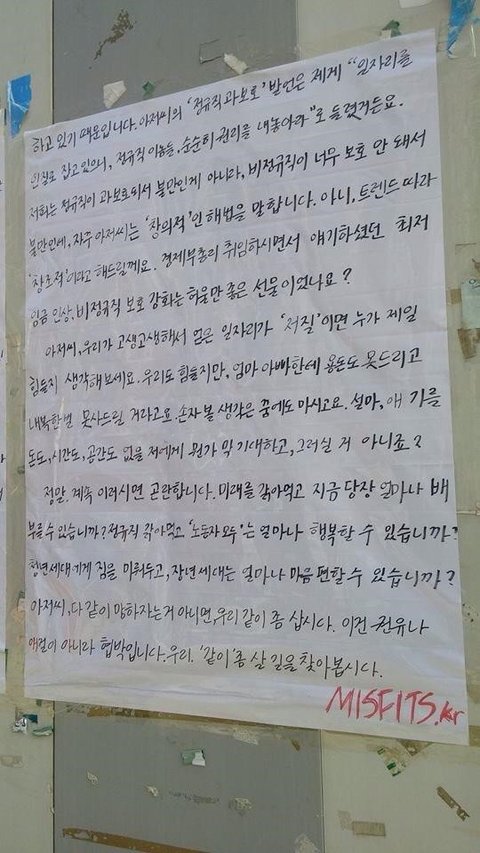 하고 있기 때문입니다. 아저씨의 '정규직 과보호' 발언은 제게 "일자리를
인질로 잡고 있으니, 정규직 이놈들, 순순히 권리를 내놓아라"로 들렸거든요.
저희는 정규직이 과보호되서 불만인게 아니라, 비정규직이 너무 보호 안 돼서
불만인데, 자꾸 아저씨는 '창의적'인 해법을 말합니다. 아니, 트렌드 따라
'창조적'이라고 해드릴께요. 경제부총리 취임하시면서 얘기하셨던 최저
임금 인상, 비정규직 보호 강화는 허울만 좋은 선물이었나요?
아저씨, 우리가 고생고생해서 얻은 일자리가 '저질'이면 누가 제일
힘들지 생각해보세요. 우리도 힘들지만, 엄마 아빠한테 용돈도 못드리고
내복 한벌 못사드릴 거라고요. 손자 볼 생각은 꿈에도 마시고요. 설마, 애 기를
돈도, 시간도, 공간도 없을 저에게 뭔가 막 기대하고, 그러실 거 아니죠?
정말. 계속 이러시면 곤란합니다. 미래를 갉아먹고 지금 당장 얼마나 배
부를 수 있습니까? 정규직 갉아먹고 '노동자 모두'는 얼마나 행복할 수 있습니까?
청년세대에게 짐을 미뤄두고, 장년세대는 얼마나 마음 편할 수 있습니까?
아저씨, 다 같이 망하자는거 아니면, 우리 같이 좀 삽시다. 이건 권유나
애걸이 아니라 협박입니다. 우리. '같이' 좀 살 길을 찾아봅시다.
MISFITS.kr